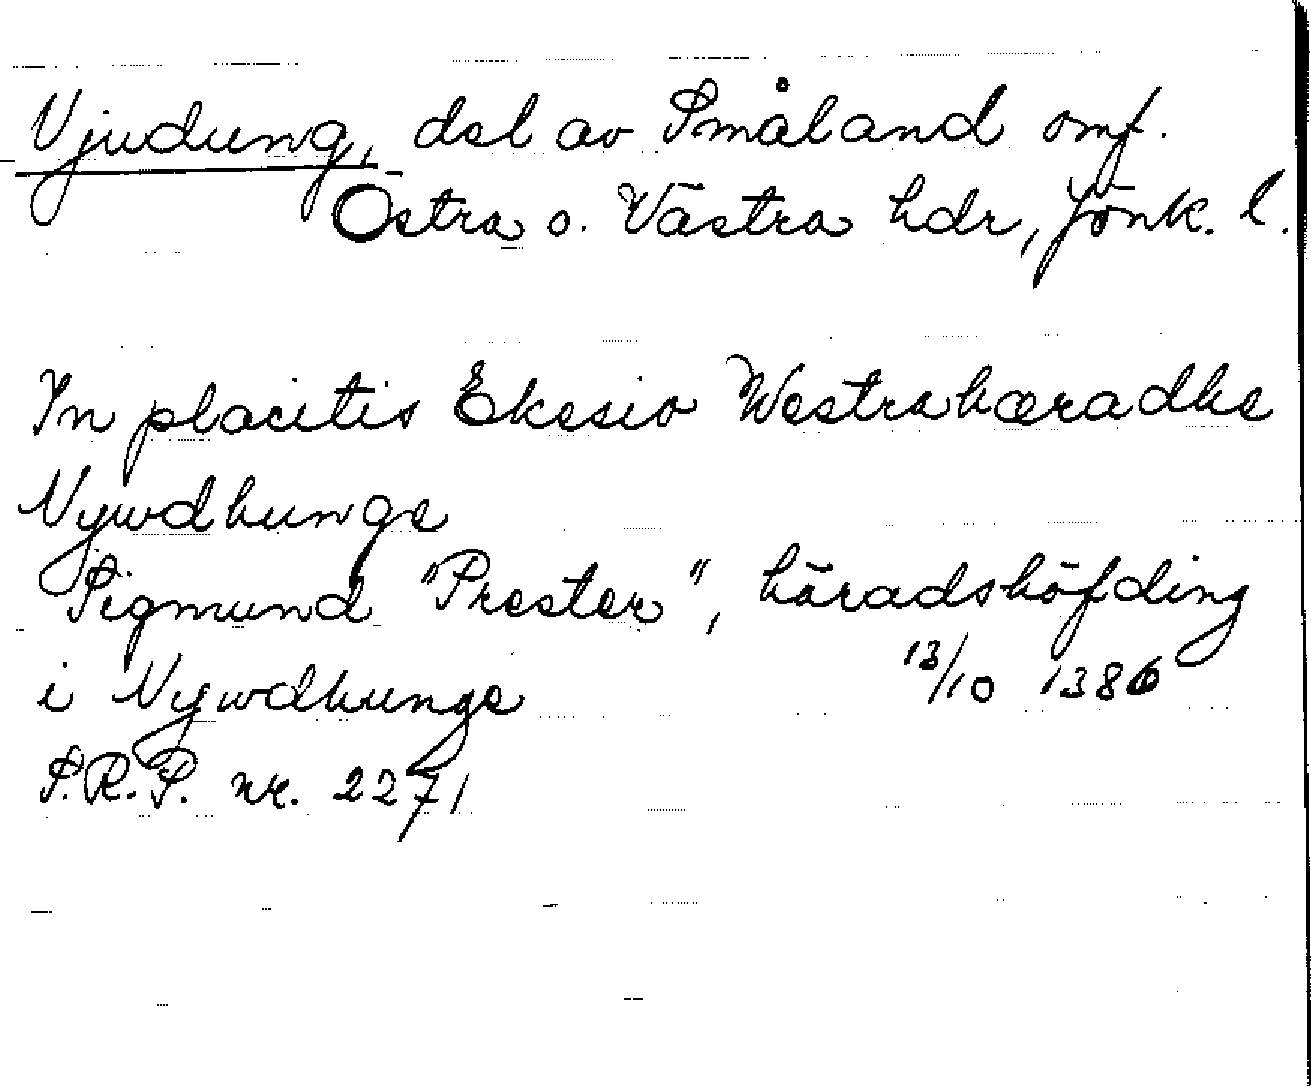 Njudung, del av Småland omf.
Östra o. Västra hdr, Jönk. l.
In placitis Ekesio Westrahæradhe
Nywdhungs
Sigmund "Prester", häradshöfding
i Nywdhungs 13/10 1386
S.R.P. nr. 2271